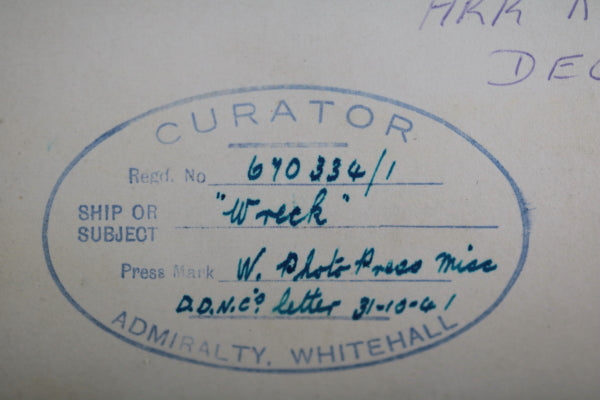 DEC
CURATOR
Regd. No 670334/1
SHIP OR SUBJECT "Wreck"
Press Mark W. Photo Press Misc
D.D.N.C's letter 31-10-41
ADMIRALTY, WHITEHALL